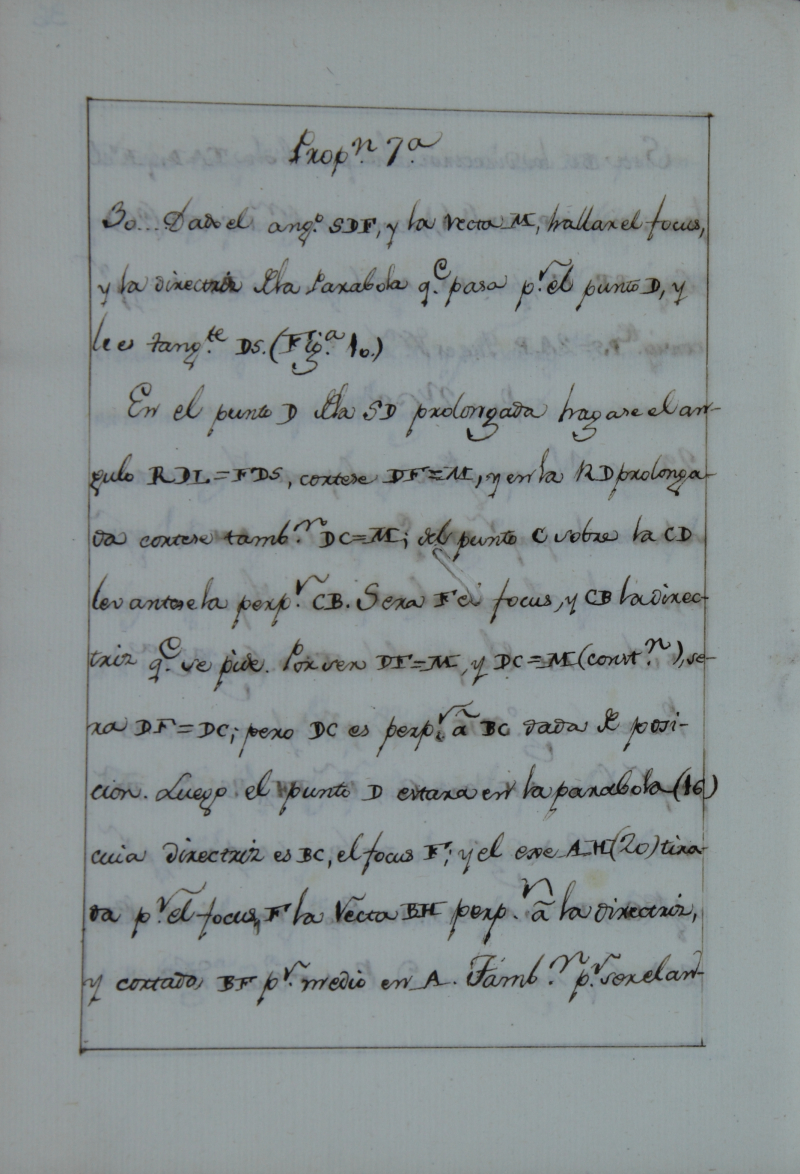 Propn. 7a.
30... Dado el ang.o SDF, y la recta M, hallar el focus,
y la directriz dla Parabola q.e pasa p.r el punto D, y
le es tang.te DS. (Fig.a 10.)
En el punto D dla SD prolongada hagase el an-
gulo RDL=FDS, cortese DF=M, y en la RD prolonga-
da cortese tamb.n DC=M; del punto C sobre la CD
levantese la perp.r CB. Sera F el focus, y CB la direc-
triz q.e se pide. Por ser DF=M, y DC=M (const.n), se-
ra DF=DC; pero DC es perp.r à BC dada de posi-
cion. Luego el punto D estara en la parabola (16)
cuia directriz es BC, el focus F; y el exe AH (20) tira-
da p.r el focus F la recta BH perp.r à la directriz,
y cortada BF p.r medio en A. Tamb.n p.r ser el an-